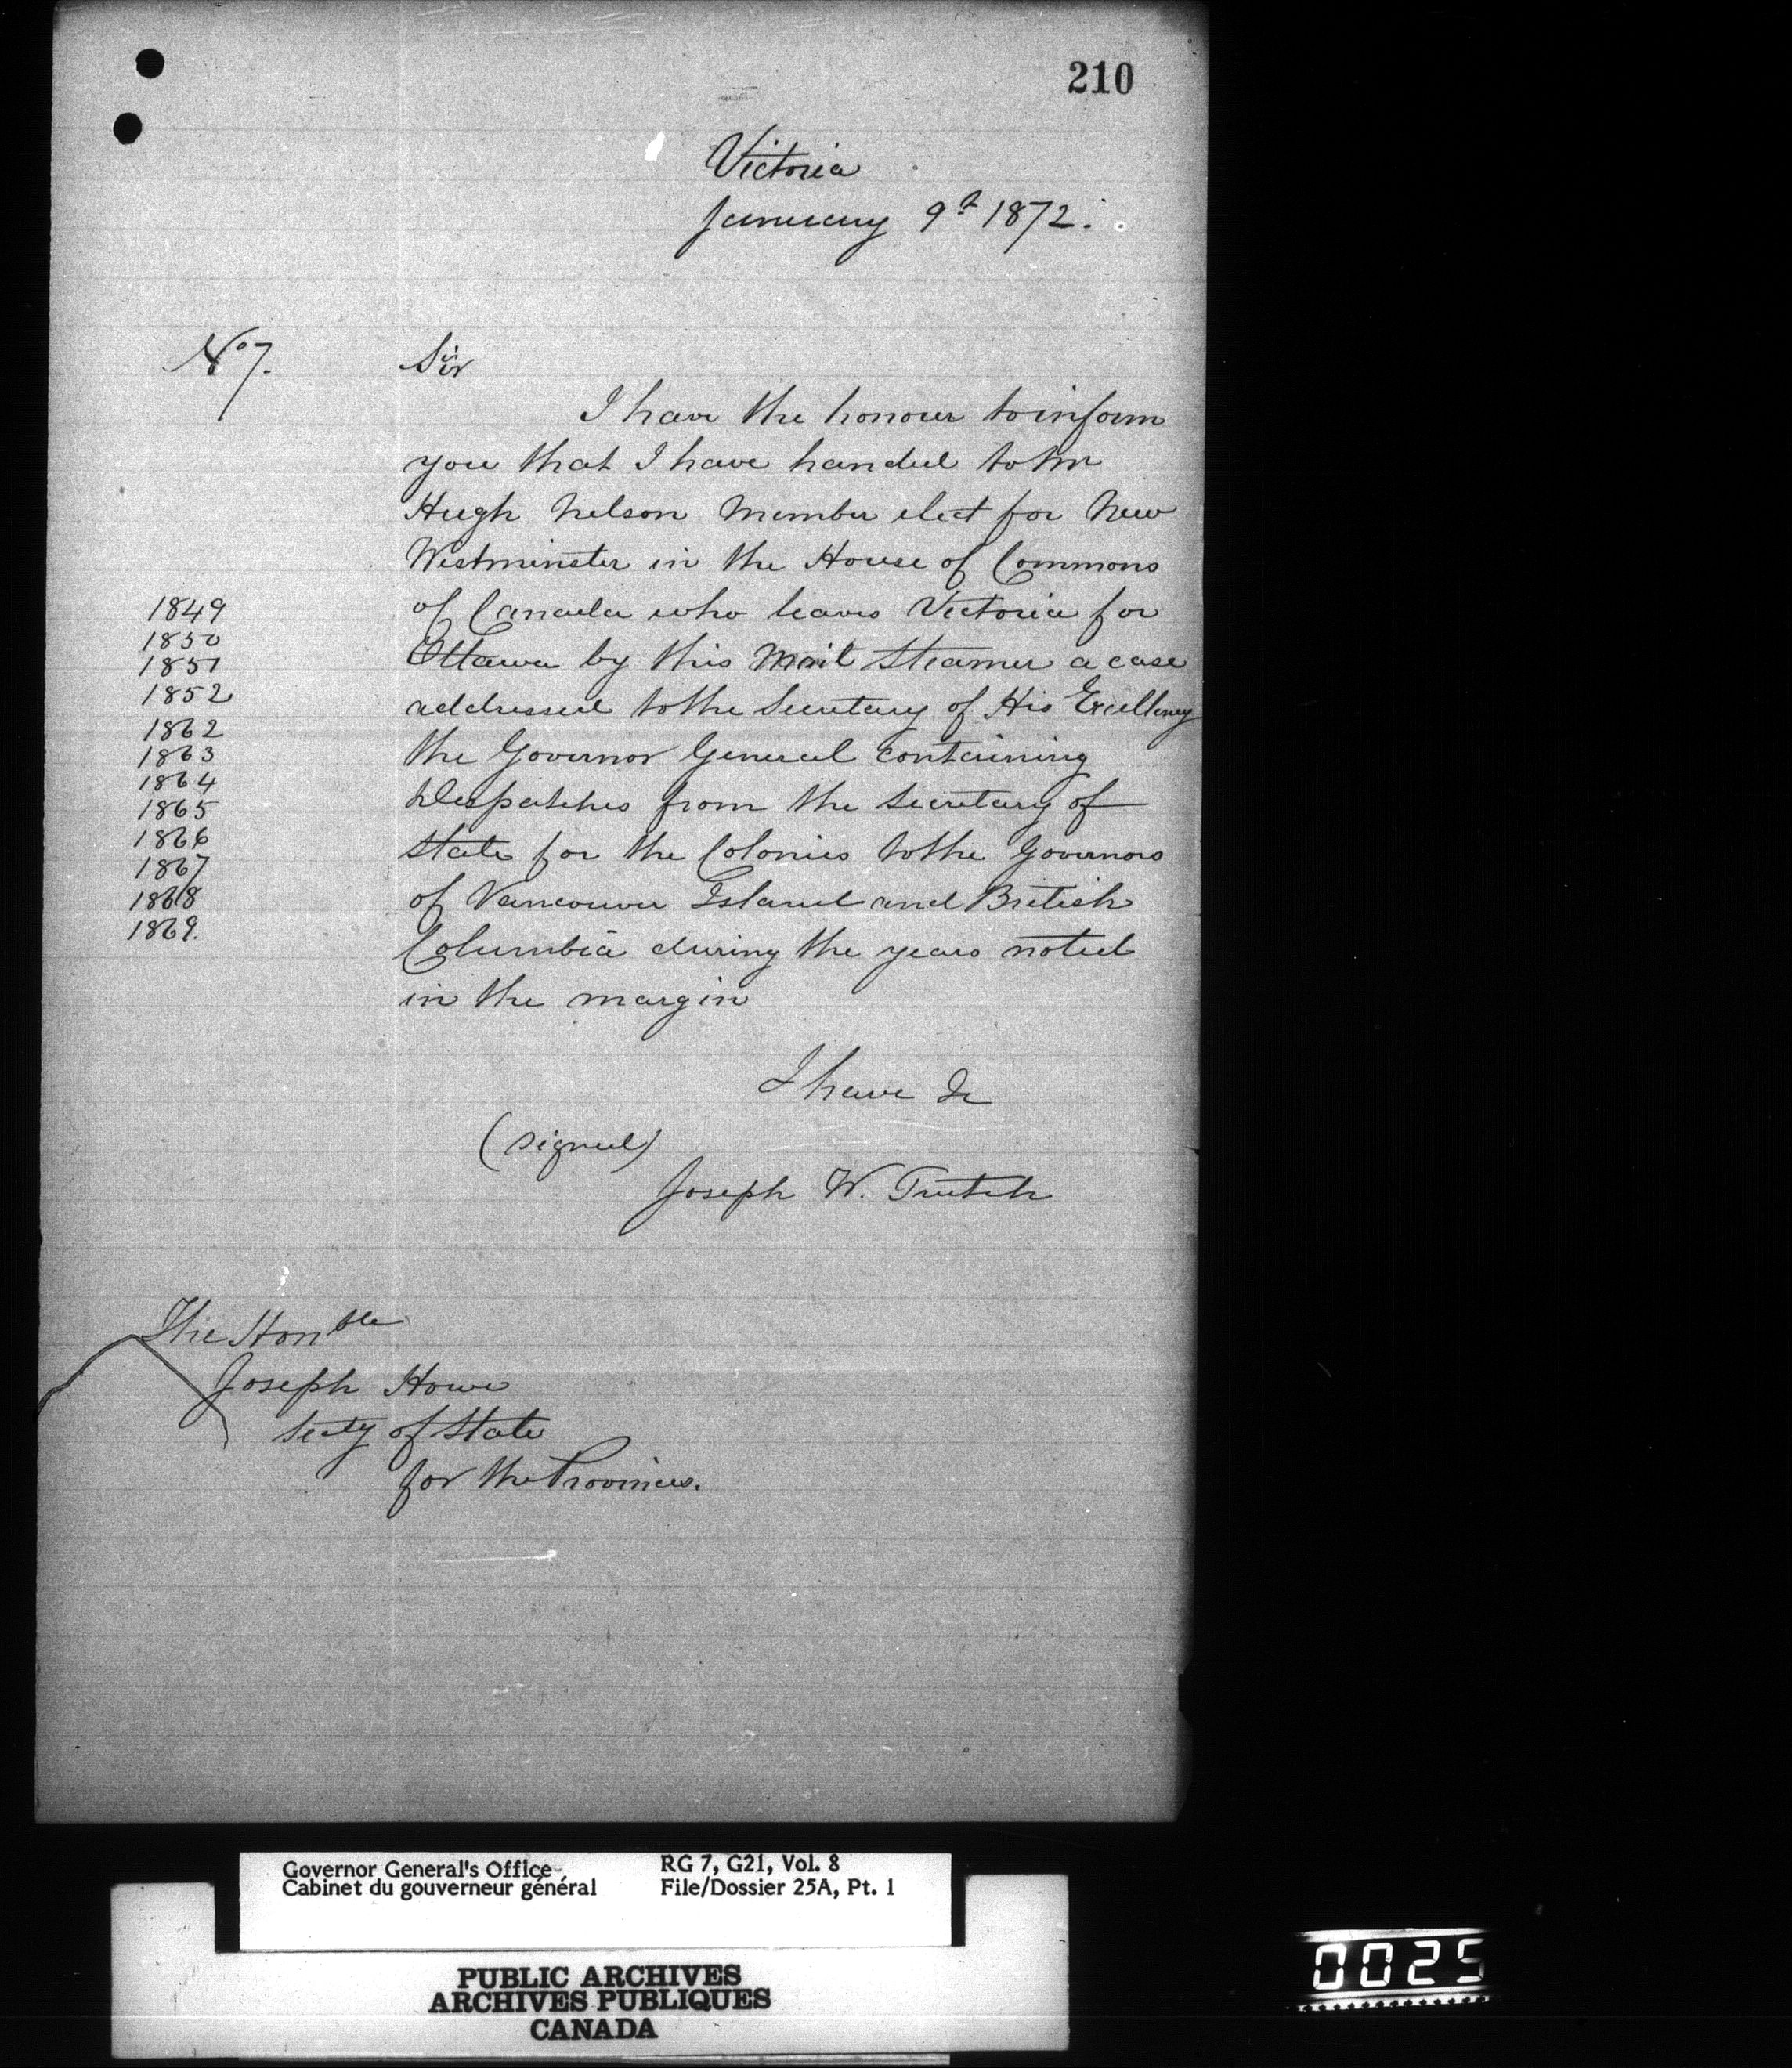 210
Victoria
January 9th 1872.
No 7.
Sir
I have the honour to inform
you that I have handed to Mr
Hugh Nelson Member elect for New
Westminster in the House of Commons
of Canada who leaves Victoria for
Ottawa by this Mail Steamer a case
addressed to the Secretary of His Excellency
the Governor General containing
Despatches from the Secretary of
State for the Colonies to the Governors
of Vancouver Island and British
Columbia during the years noted
in the margin
1849
1850
1851
1852
1862
1863
1864
1865
1866
1867
1868
1869.
I have &c
(signed)
Joseph W. Trutch
The Honble
Joseph Howe
Secty of State
for the Provinces.
Governor General's Office
Cabinet du gouverneur général
RG 7, G21, Vol. 8
File/Dossier 25A, Pt. 1
PUBLIC ARCHIVES
ARCHIVES PUBLIQUES
CANADA
0025